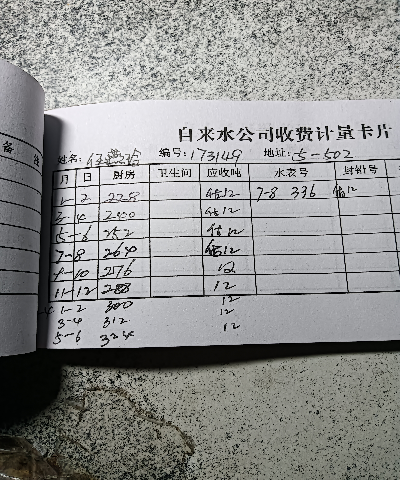 备
自来水公司收费计量卡片
姓名: 编号: 173149 地址: 5-502
月 日 厨房 卫生间 应收吨 水表号 封铅号
1-2 228 估12 7-8 336 估12
3-4 240 估12
5-6 252 估12
7-8 264 估12
9-10 276 12
11-12 288 12
1-2 300 12
3-4 312 12
5-6 324 12